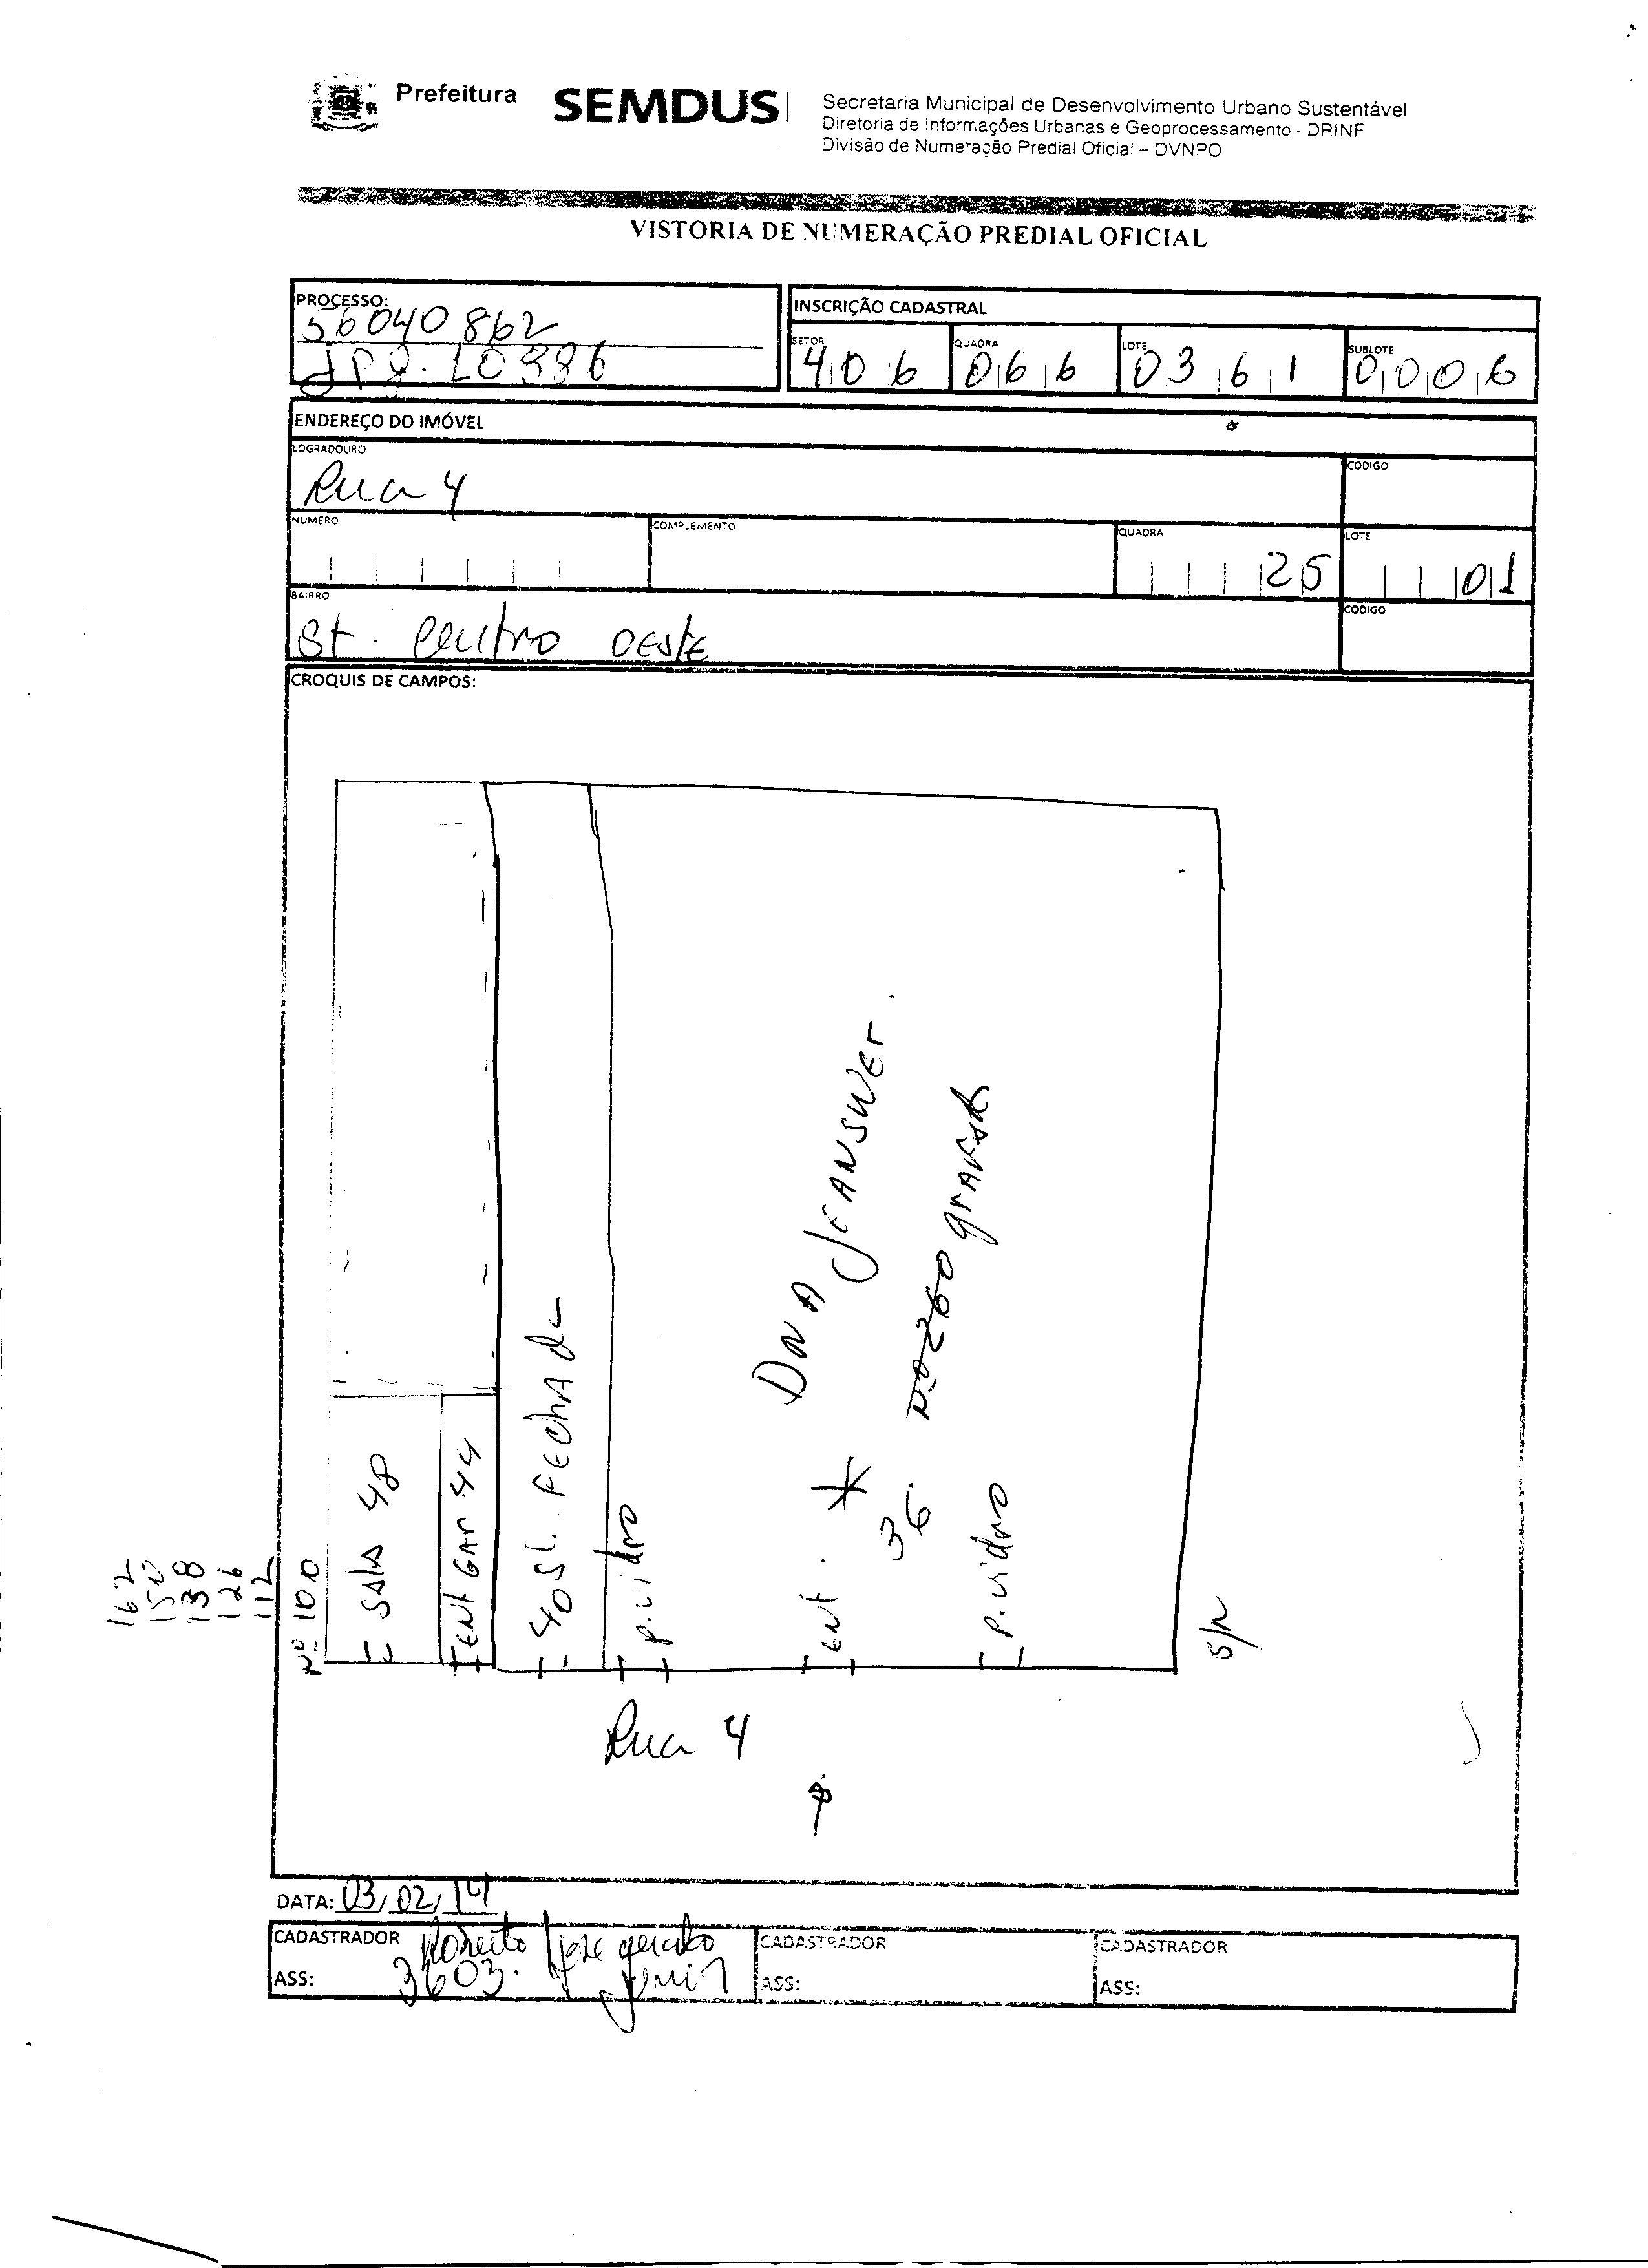 Prefeitura
SEMDUS
Secretaria Municipal de Desenvolvimento Urbano Sustentável
Diretoria de Informações Urbanas e Geoprocessamento - DRINF
Divisão de Numeração Predial Oficial – DVNPO
VISTORIA DE NUMERAÇÃO PREDIAL OFICIAL
PROCESSO:
56040862
INSCRIÇÃO CADASTRAL
SETOR
406
QUADRA
066
LOTE
0361
SUBLOTE
0006
ENDEREÇO DO IMÓVEL
LOGRADOURO
Rua 4
CODIGO
NUMERO
COMPLEMENTO
QUADRA
25
LOTE
01
BAIRRO
St. Centro OESTE
CODIGO
CROQUIS DE CAMPOS:
162
150
138
126
112
Nº 100
SAlA 48
ENt GAr 44
40 Sl. FEchAda
p.vidro
ENt.
DNA JEANSWEr.
36
Nº 260
p.vidro
S/N
Rua 4
DATA: 03/02/14
CADASTRADOR
ASS:
3603.
CADASTRADOR
ASS:
CADASTRADOR
ASS: